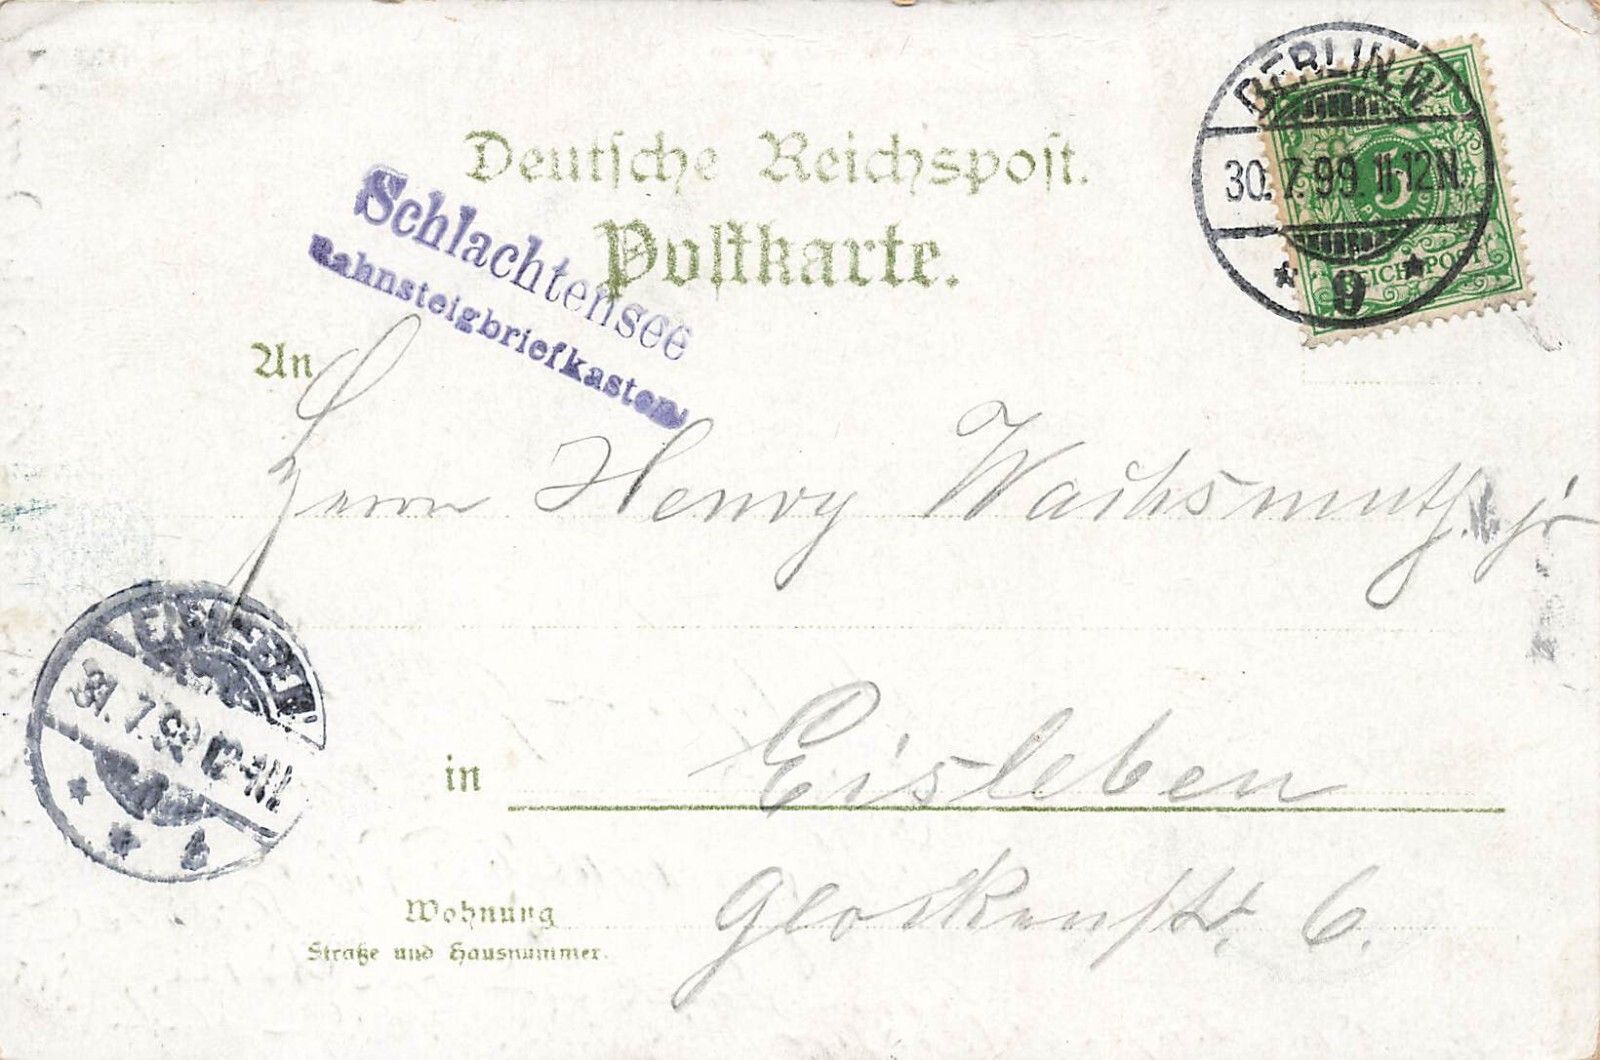 Deutsche Reichspost.
Postkarte.
Schlachtensee
Bahnsteigbriefkasten
BERLIN.W.
30.7.99.11-12N.
* 9 *
5
PFENNIG
REICHSPOST
An
Herrn Henry Wachsmuth jr
EISLEBEN
31.7.99
in Eisleben
Wohnung
Straße und Hausnummer.
Glockenstr. 6.